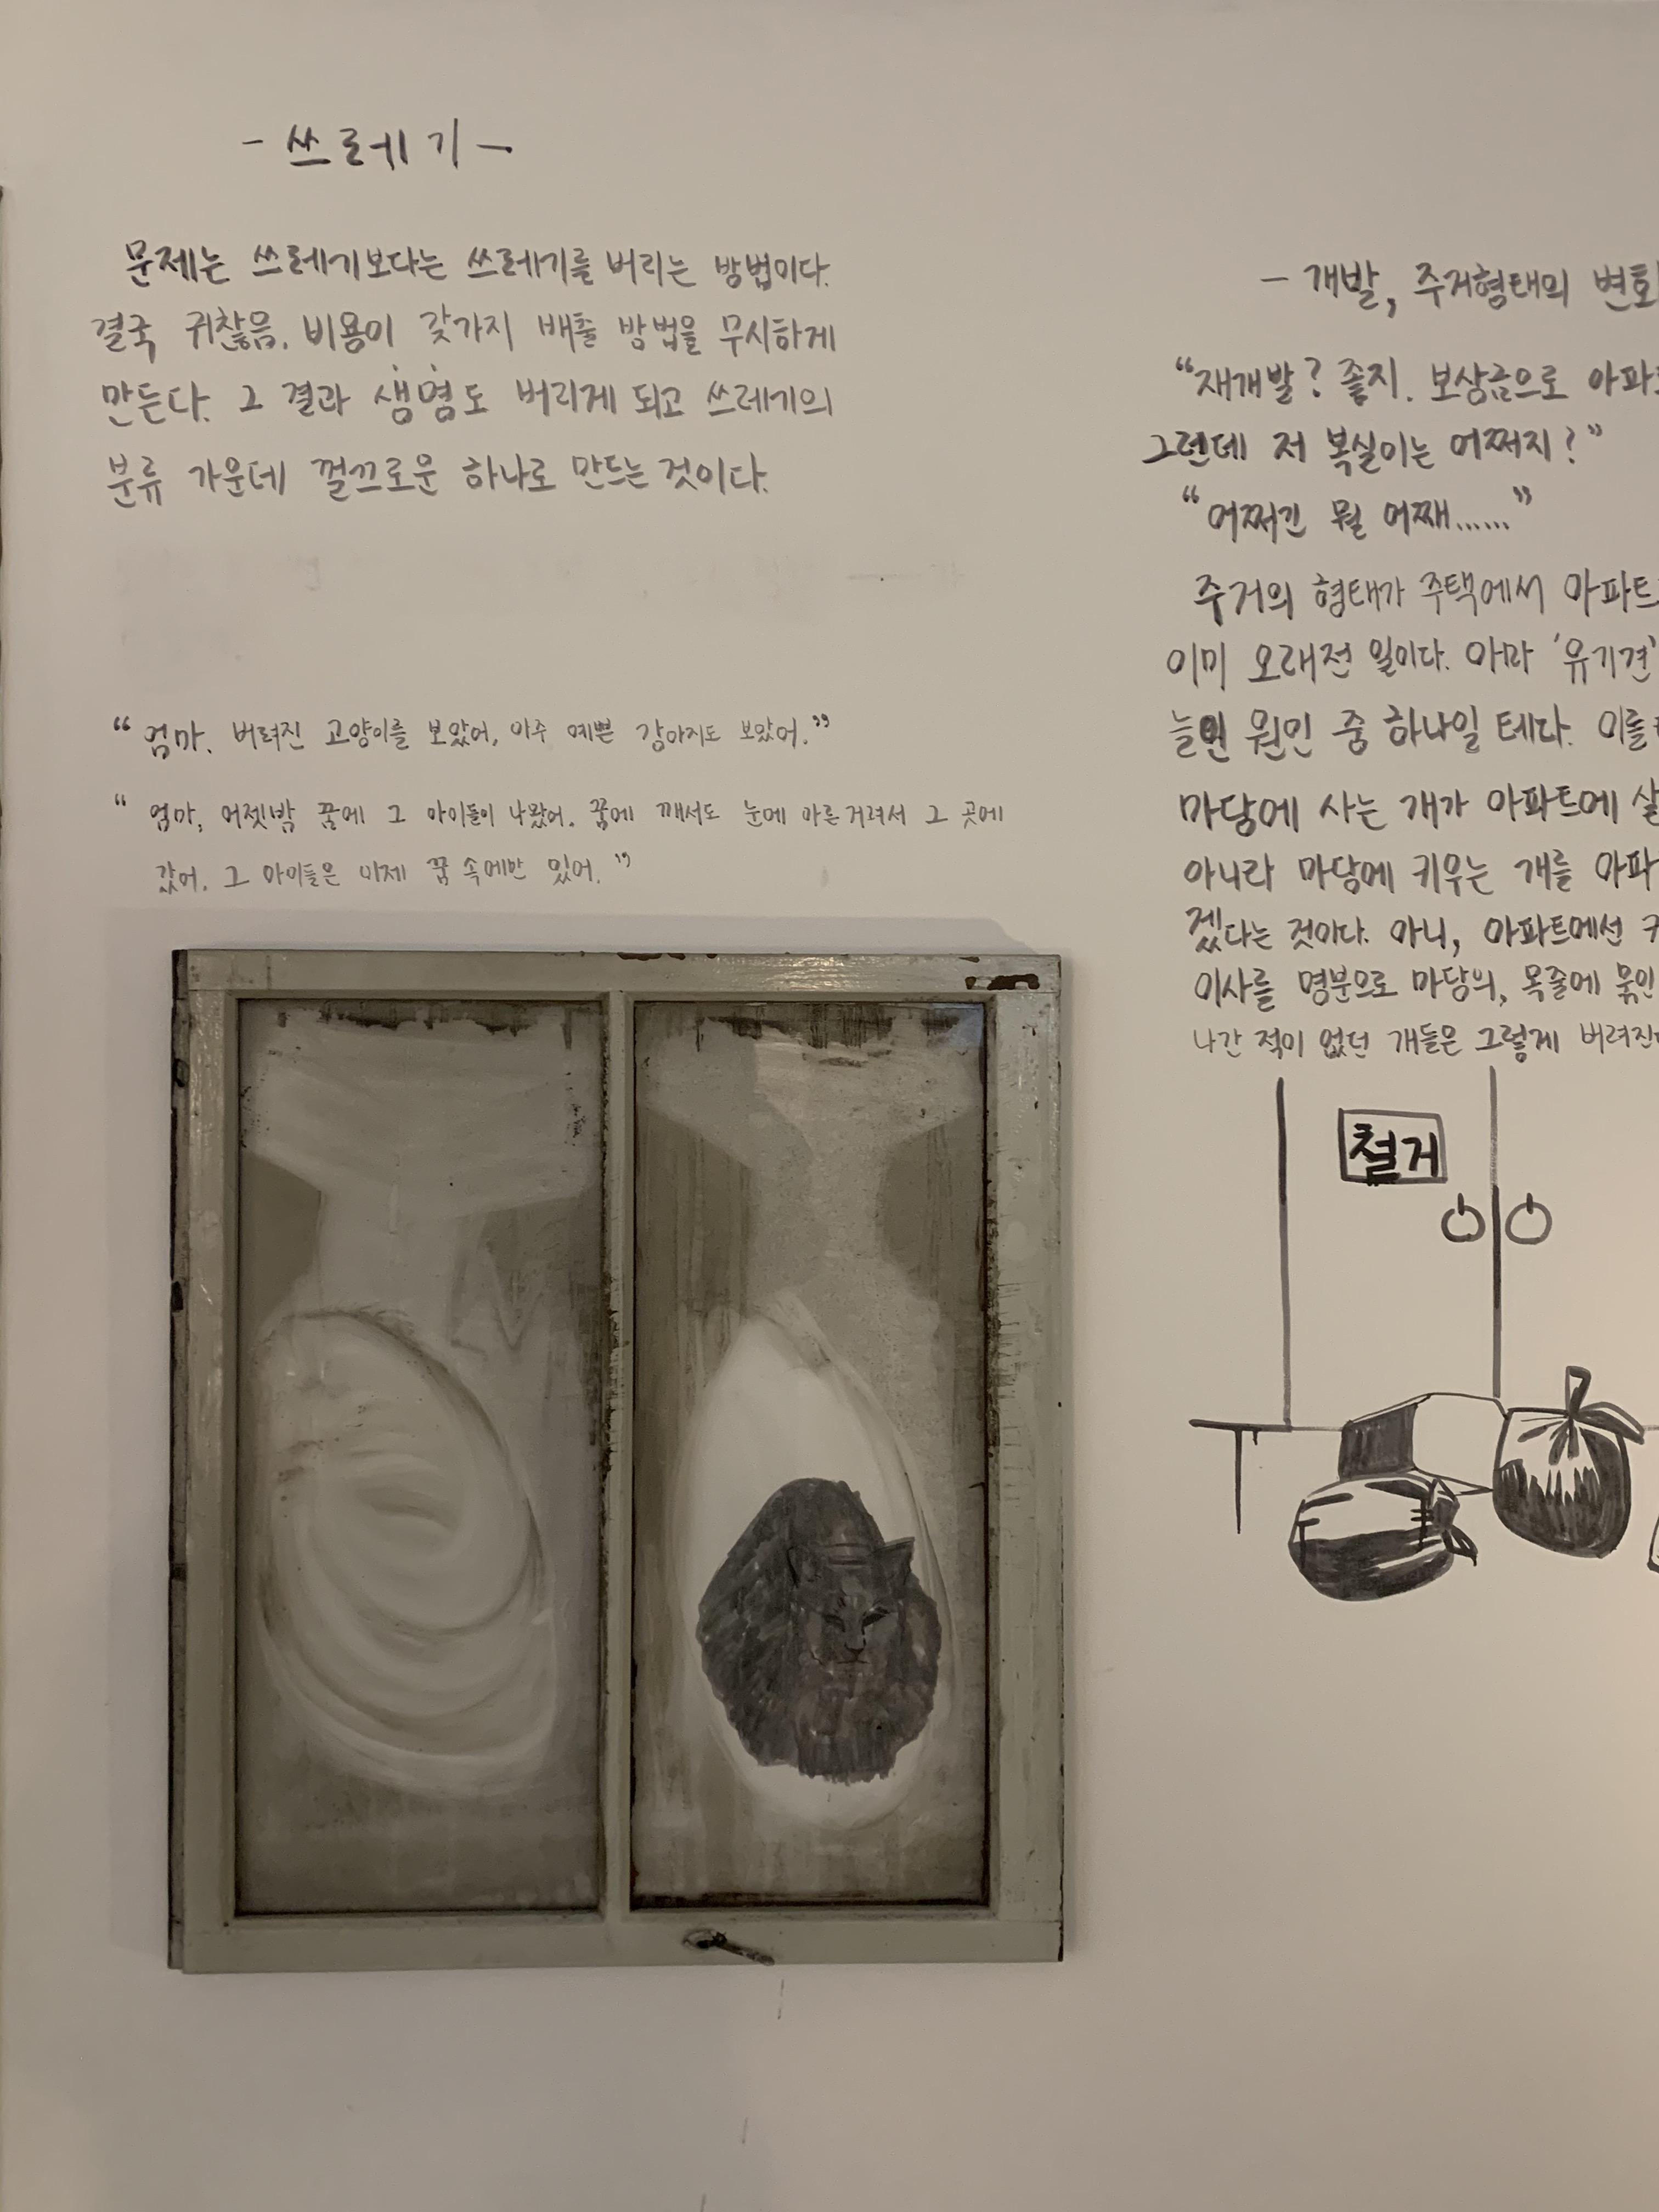 - 쓰레기 -
문제는 쓰레기보다는 쓰레기를 버리는 방법이다.
결국 귀찮음, 비용이 갖가지 배출 방법을 무시하게
만든다. 그 결과 생명도 버리게 되고 쓰레기의
분류 가운데 껄끄로운 하나로 만드는 것이다.
“엄마, 버려진 고양이를 보았어, 아주 예쁜 강아지도 보았어.”
“엄마, 어젯밤 꿈에 그 아이들이 나왔어. 꿈에 깨서도 눈에 아른거려서 그 곳에
갔어. 그 아이들은 이제 꿈 속에만 있어.”
- 개발, 주거형태의 변화
“재개발? 좋지. 보상금으로 아파트
그런데 저 복실이는 어쩌지?”
“어쩌긴 뭘 어째......”
주거의 형태가 주택에서 아파트
이미 오래전 일이다. 아마 '유기견'
늘인 원인 중 하나일 테다. 이를
마당에 사는 개가 아파트에 살
아니라 마당에 키우는 개를 아파
겠다는 것이다. 아니, 아파트에선 키
이사를 명분으로 마당의, 목줄에 묶인
나간 적이 없던 개들은 그렇게 버려진
철거